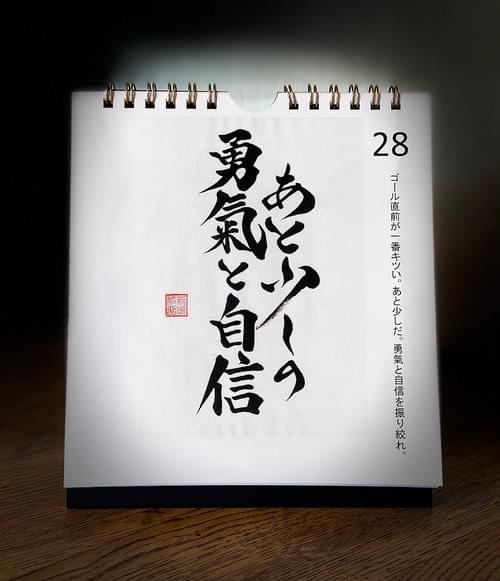 28
ゴール直前が一番キツい。あと少しだ。勇氣と自信を振り絞れ。
あと少しの
勇氣と自信